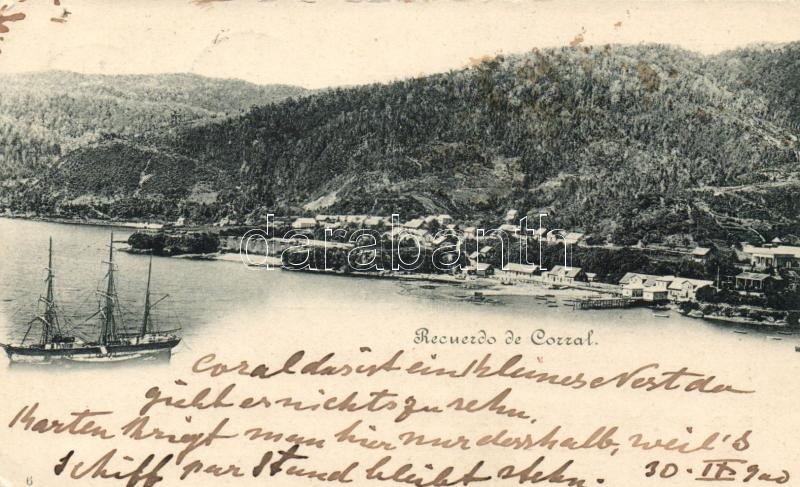 darabanth
Recuerdo de Corral.
Coral das ist ein kleines Nest da
giebt es nichts zu sehn,
Karten kriegt man hier nur desshalb, weil's
Schiff par Stund bleibt stehn. 30. IX 900
6